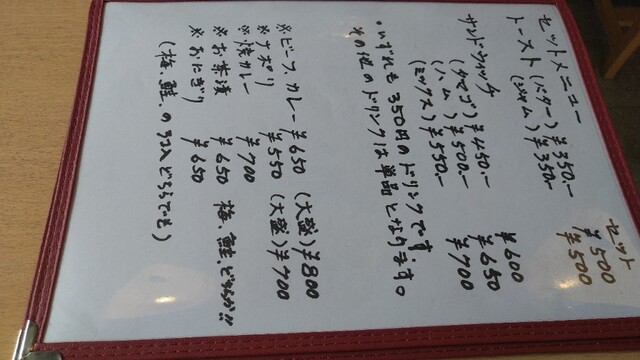 セットメニュー セット
トースト(バター)¥350.- ¥500
(ジャム)¥350.- ¥500
サンドウィッチ
(タマゴ)¥450.- ¥600
(ハム)¥500.- ¥650
(ミックス)¥550.- ¥700
・いずれも350円のドリンクです。
その他のドリンクは単品となります。
※ビーフカレー ¥650 (大盛)¥800
※ナポリ ¥550 (大盛)¥700
※焼カレー ¥700
※お茶漬 ¥650 梅、鮭どちらか!!
※おにぎり ¥650
(梅、鮭、の2コ入どちらでも)